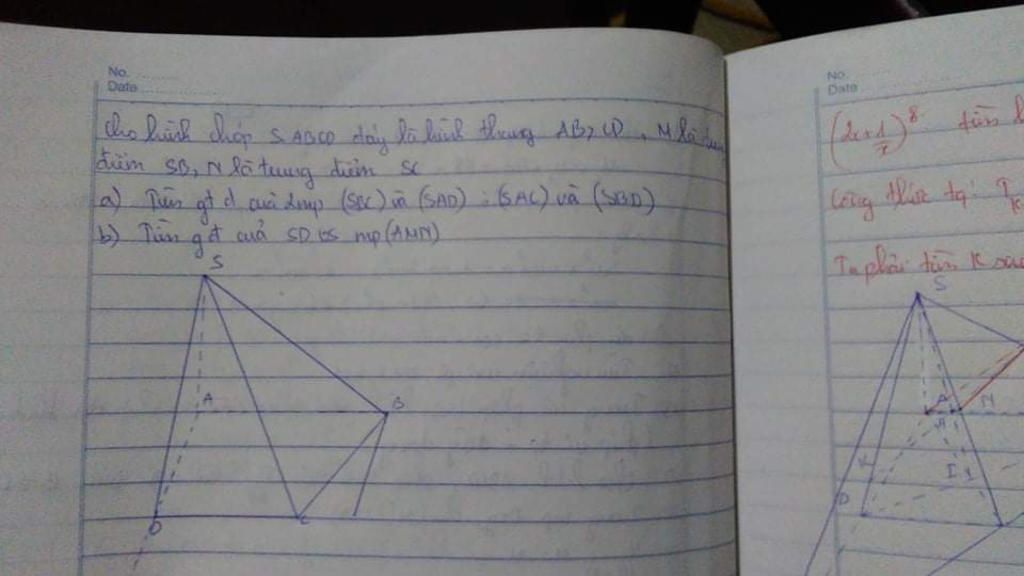 No.
Date
Cho hình chóp S.ABCD đáy là hình thang AB > CD, M là trung
điểm SB, N là trung điểm SC
a) Tìm gt d của 2mp (SBC) và (SAD) ; (SAC) và (SBD)
b) Tìm gđ của SD vs mp (AMN)
S
A
B
D
C
No.
Date
(2x + 1/x)^8 tìm
Công thức tq: T
Ta phải tìm K sao
S
A
N
K
I
D